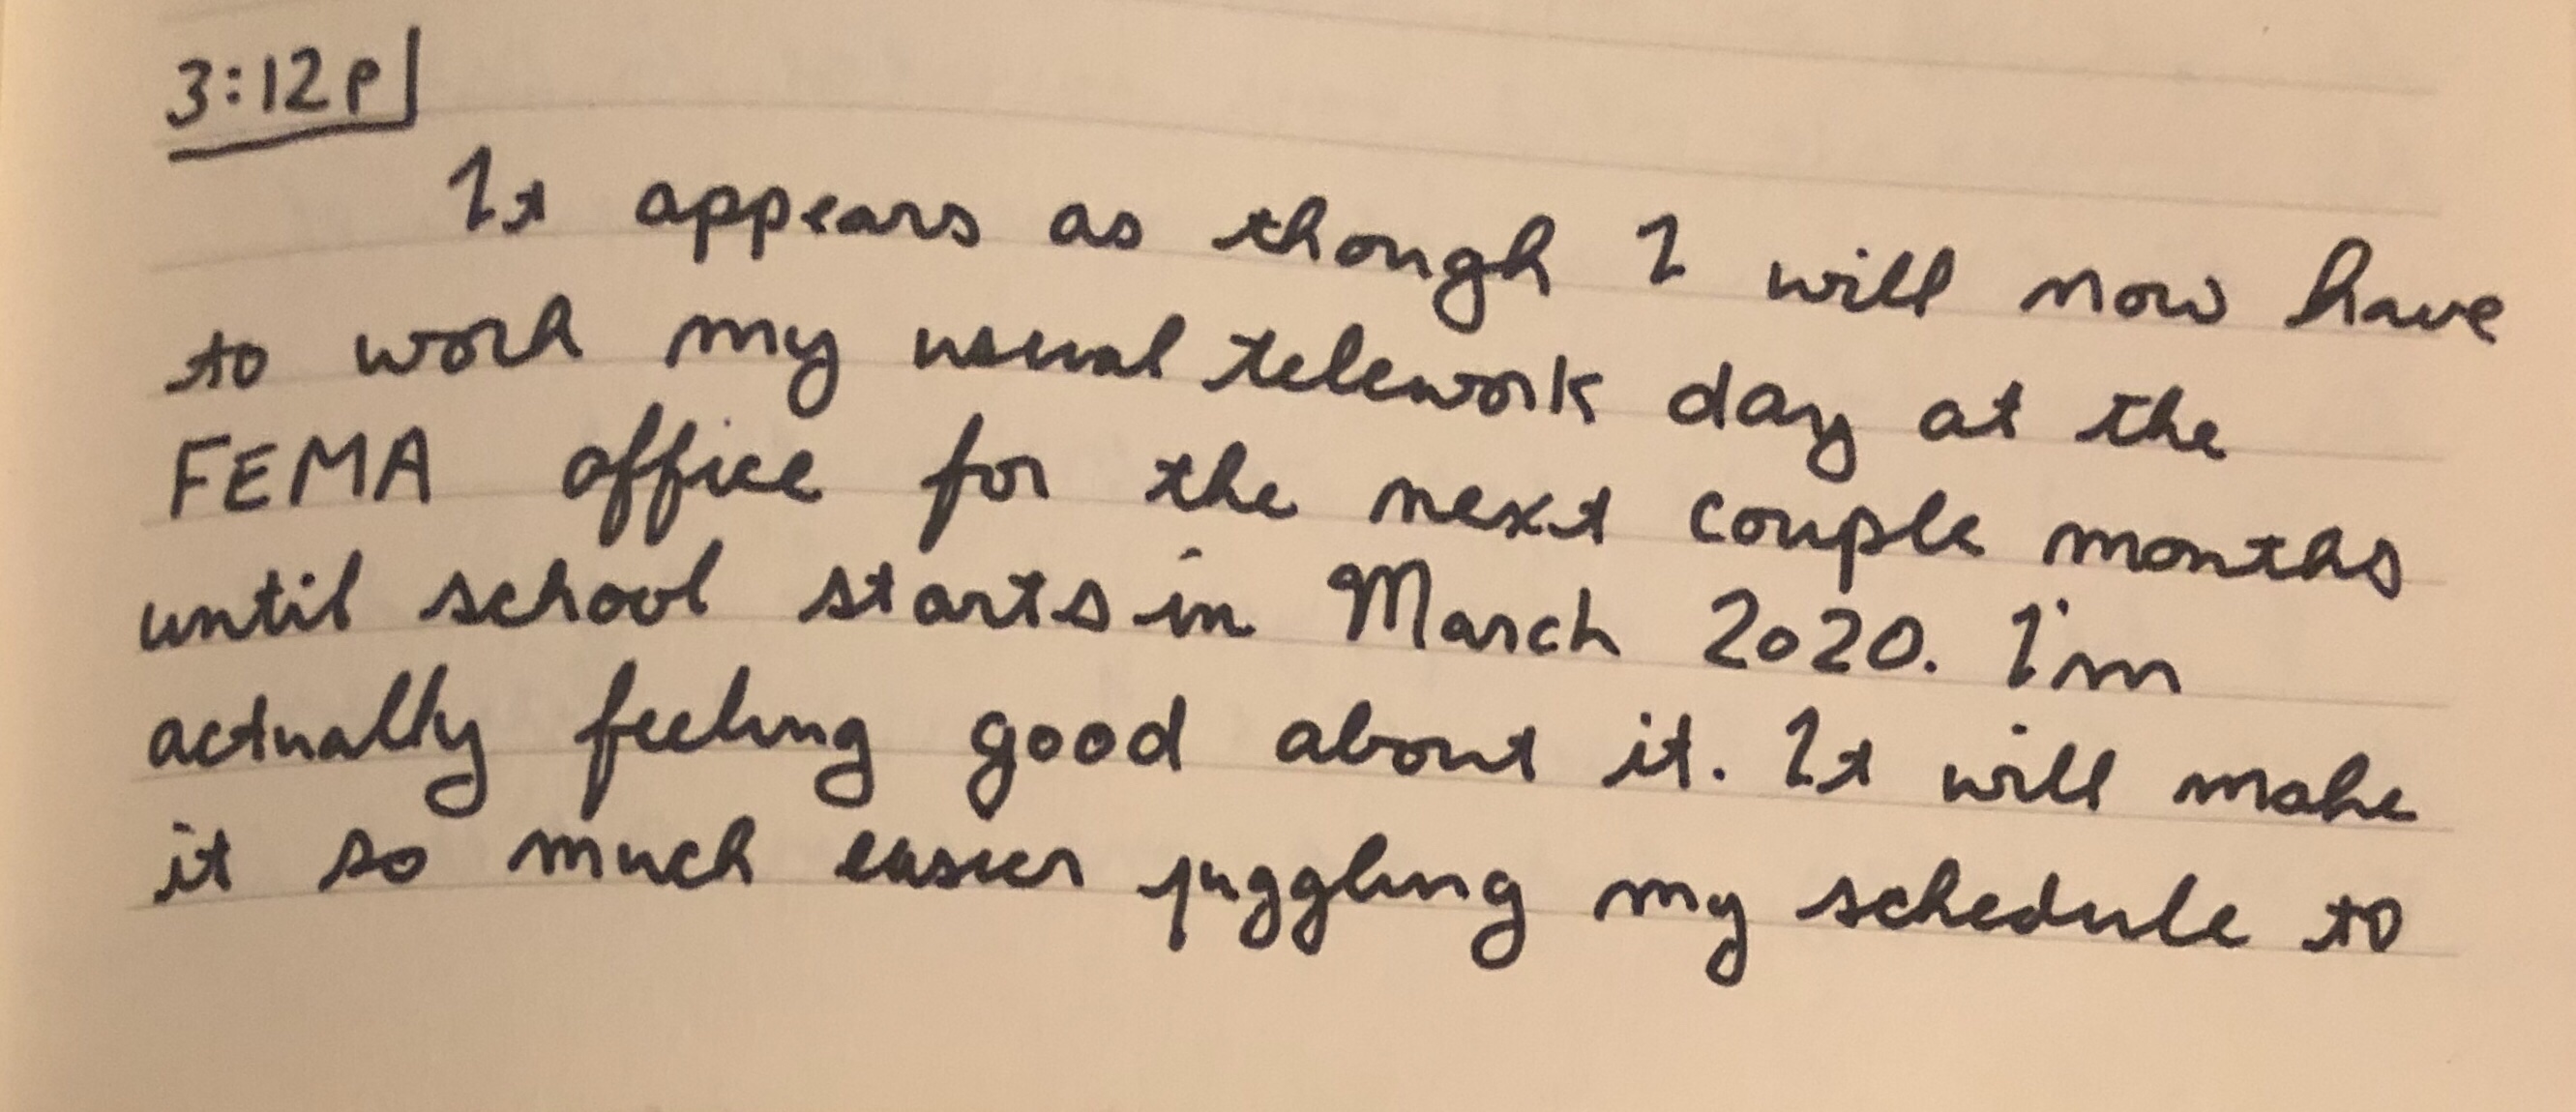 3:12p
It appears as though I will now have
to work my usual telework day at the
FEMA office for the next couple months
until school starts in March 2020. I'm
actually feeling good about it. It will make
it so much easier juggling my schedule to